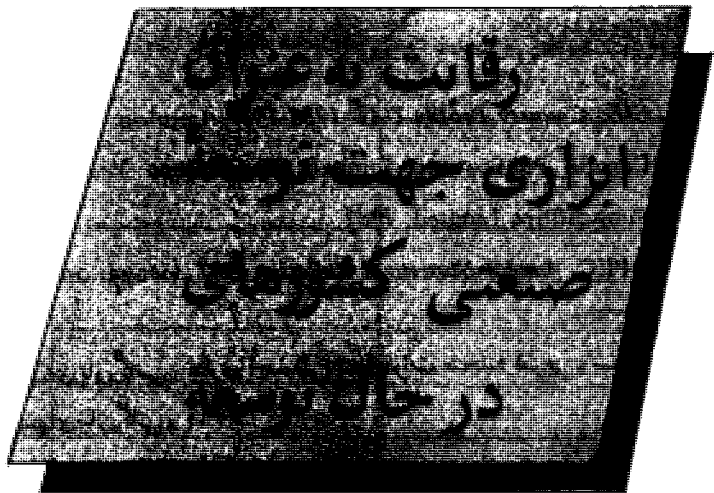 رقابت به عنوان
ابزاری جهت توسعه
صنعتی کشورهای
در حال توسعه